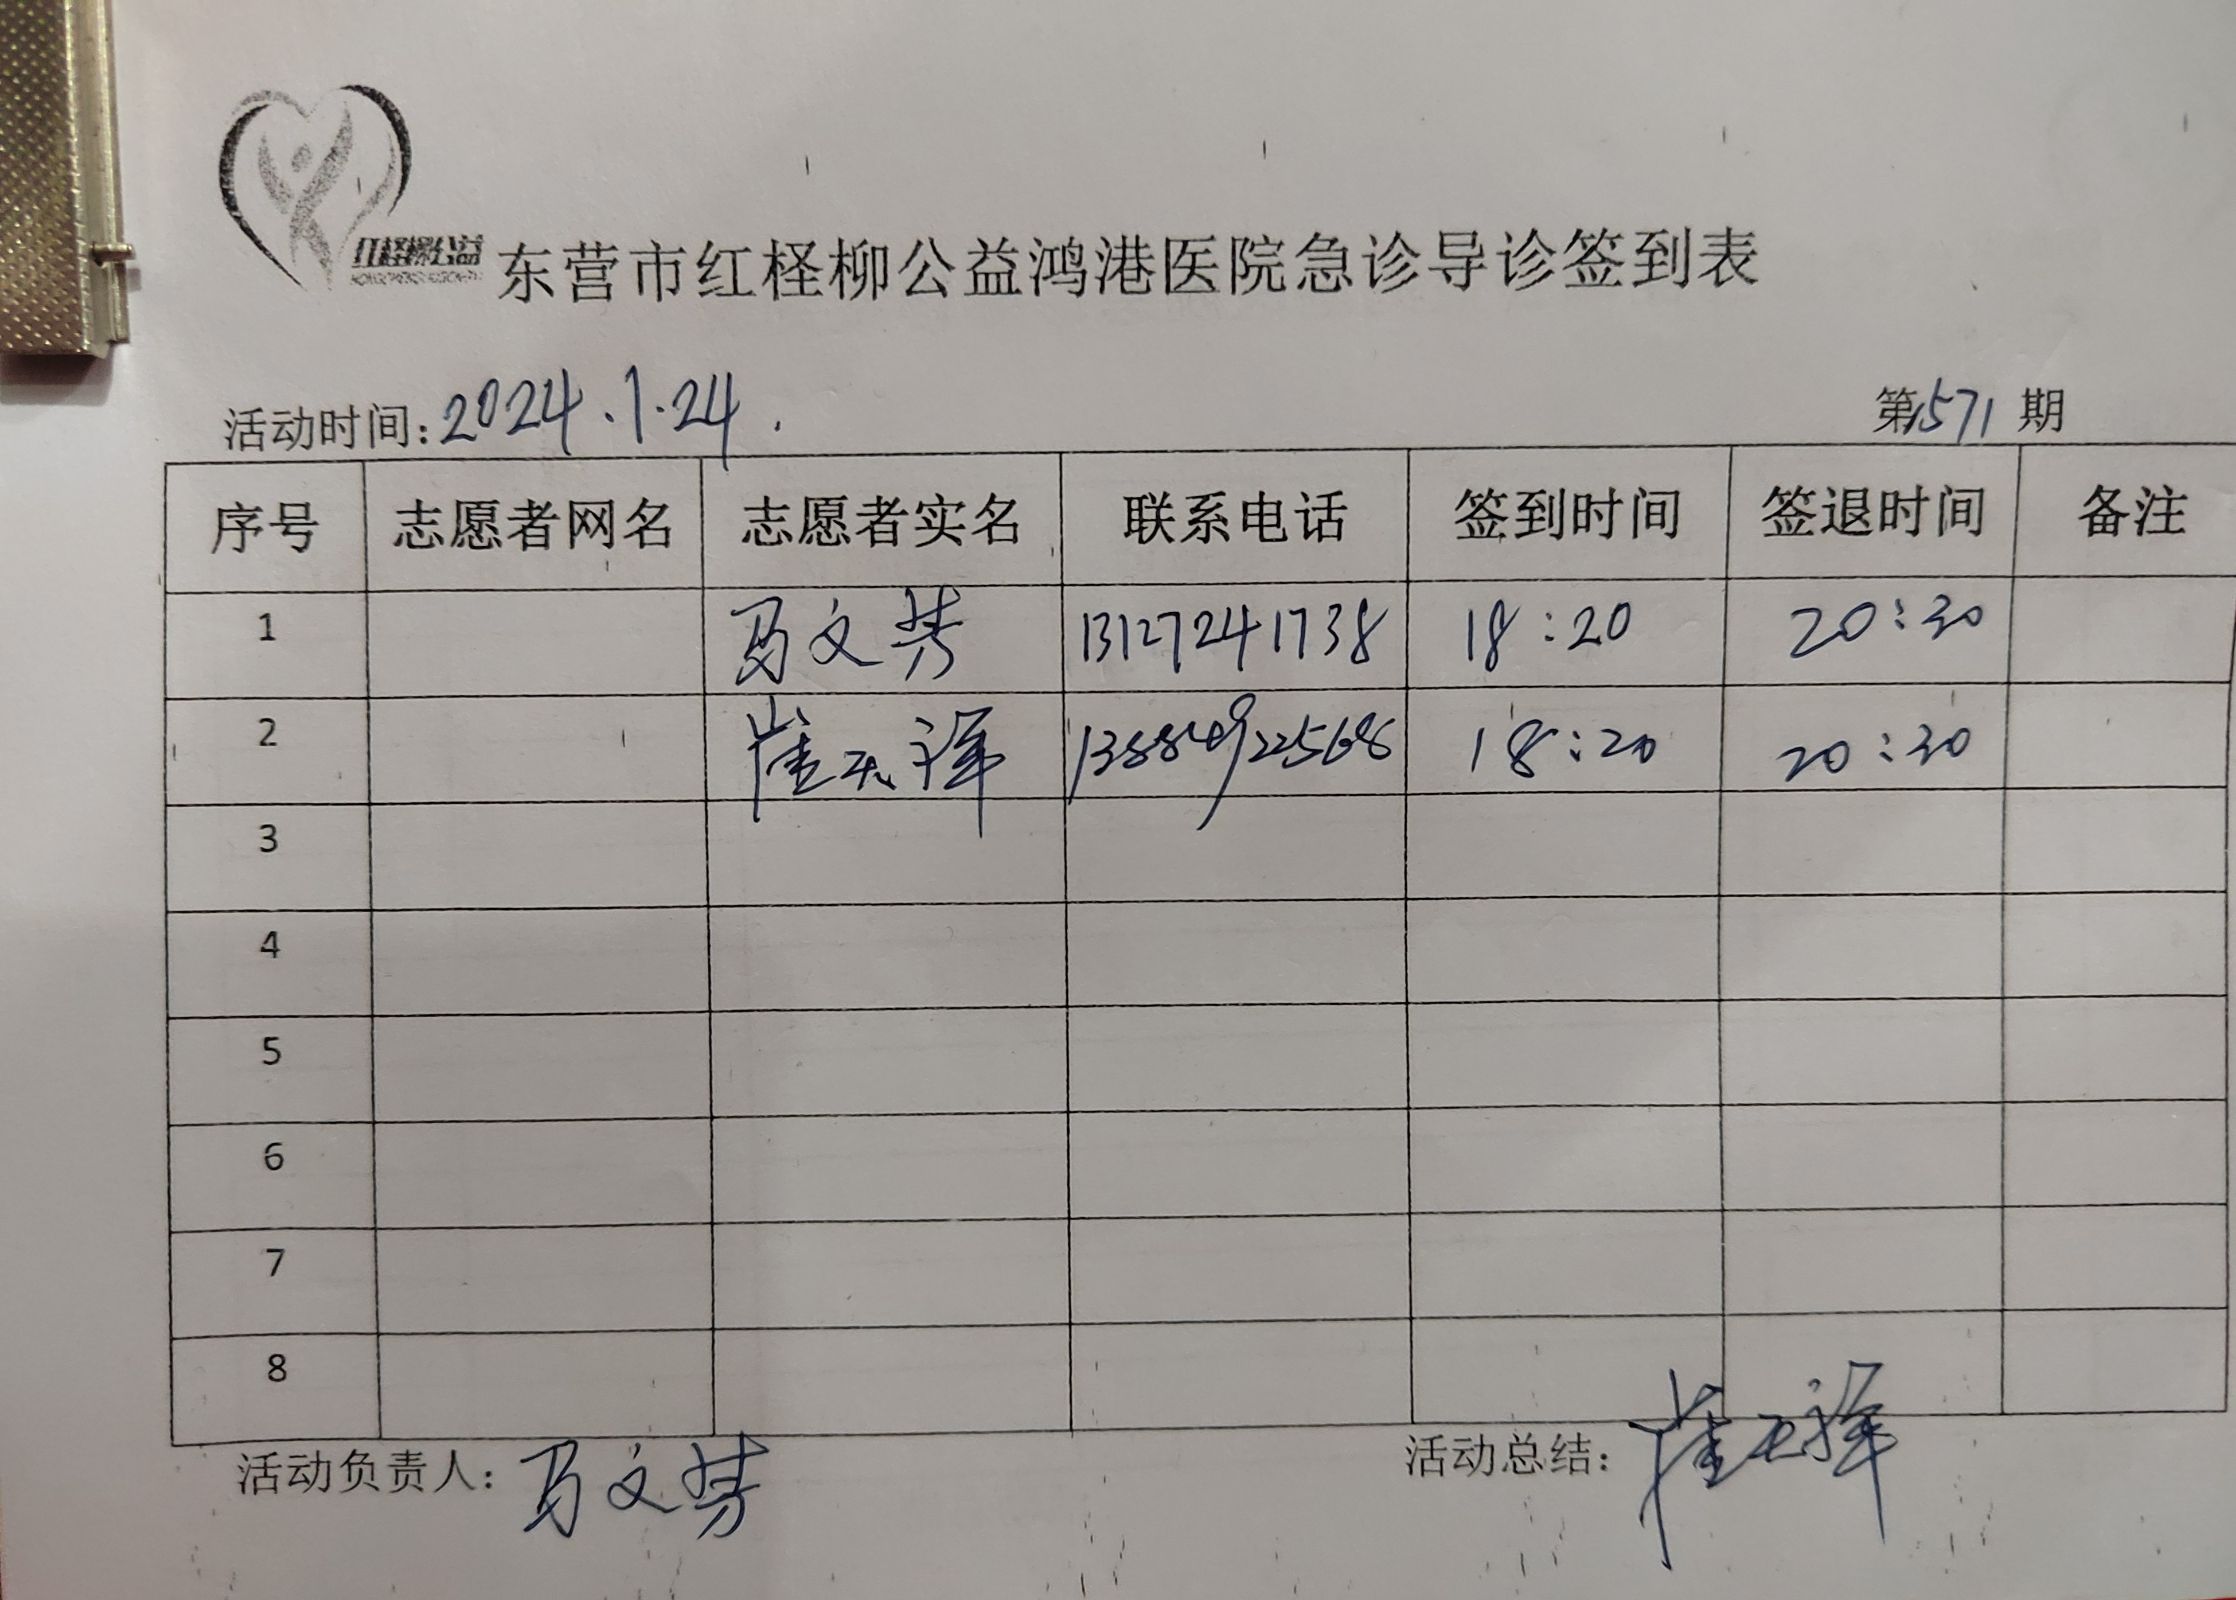 红柽柳公益
东营市红柽柳公益鸿港医院急诊导诊签到表
活动时间: 2024.1.24. 第1571期
序号 志愿者网名 志愿者实名 联系电话 签到时间 签退时间 备注
1 马文芳 13127241738 18:20 20:30
2 崔天泽 18:20 20:30
3
4
5
6
7
8
活动负责人: 马文芳 活动总结: 崔天泽